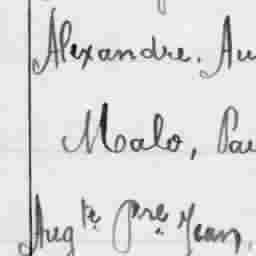 Alexandre. Au
Malo, Pau
Aug.te P.re Jean,